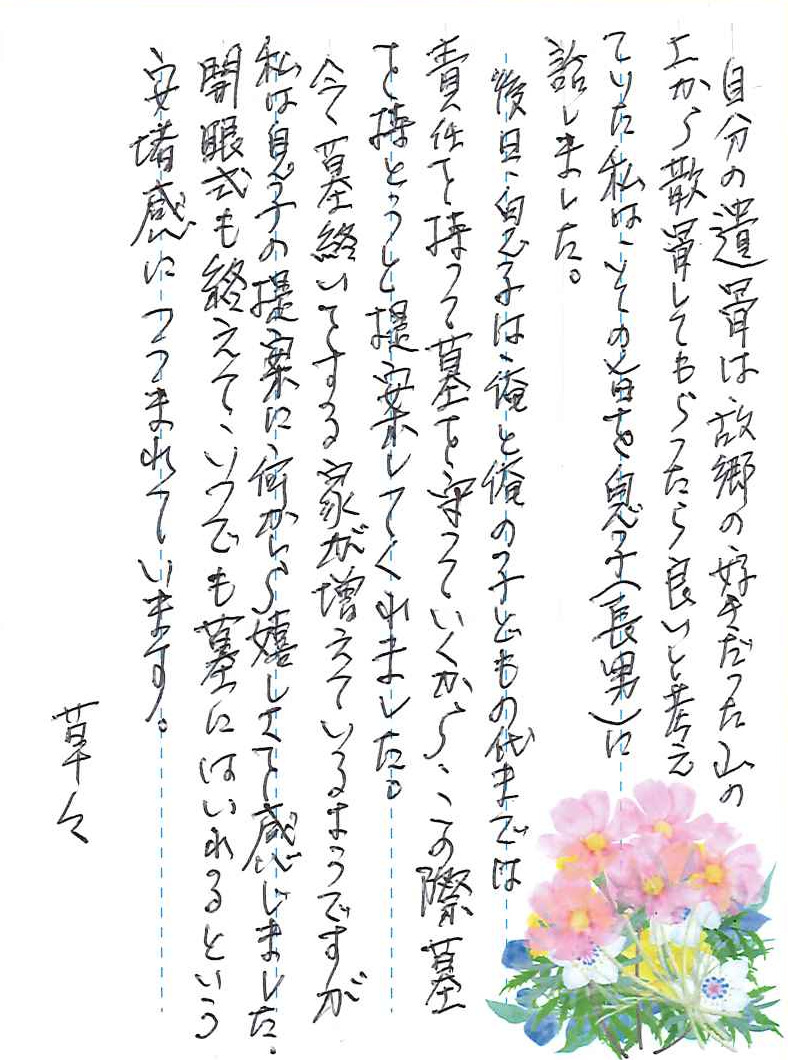 自分の遺骨は、故郷の好きだった山の
上から散骨してもらったら良いと考え
ていた私は、その旨を息子(長男)に
話しました。
後日、息子は、俺と俺の子どもの代までは
責任を持って墓を守っていくから、この際墓
を持とうと提案してくれました。
今、墓終いをする家が増えているようですが
私は息子の提案に、何かしら嬉しさを感じました。
開眼式も終えて、いつでも墓にはいれるという
安堵感につつまれています。
草々